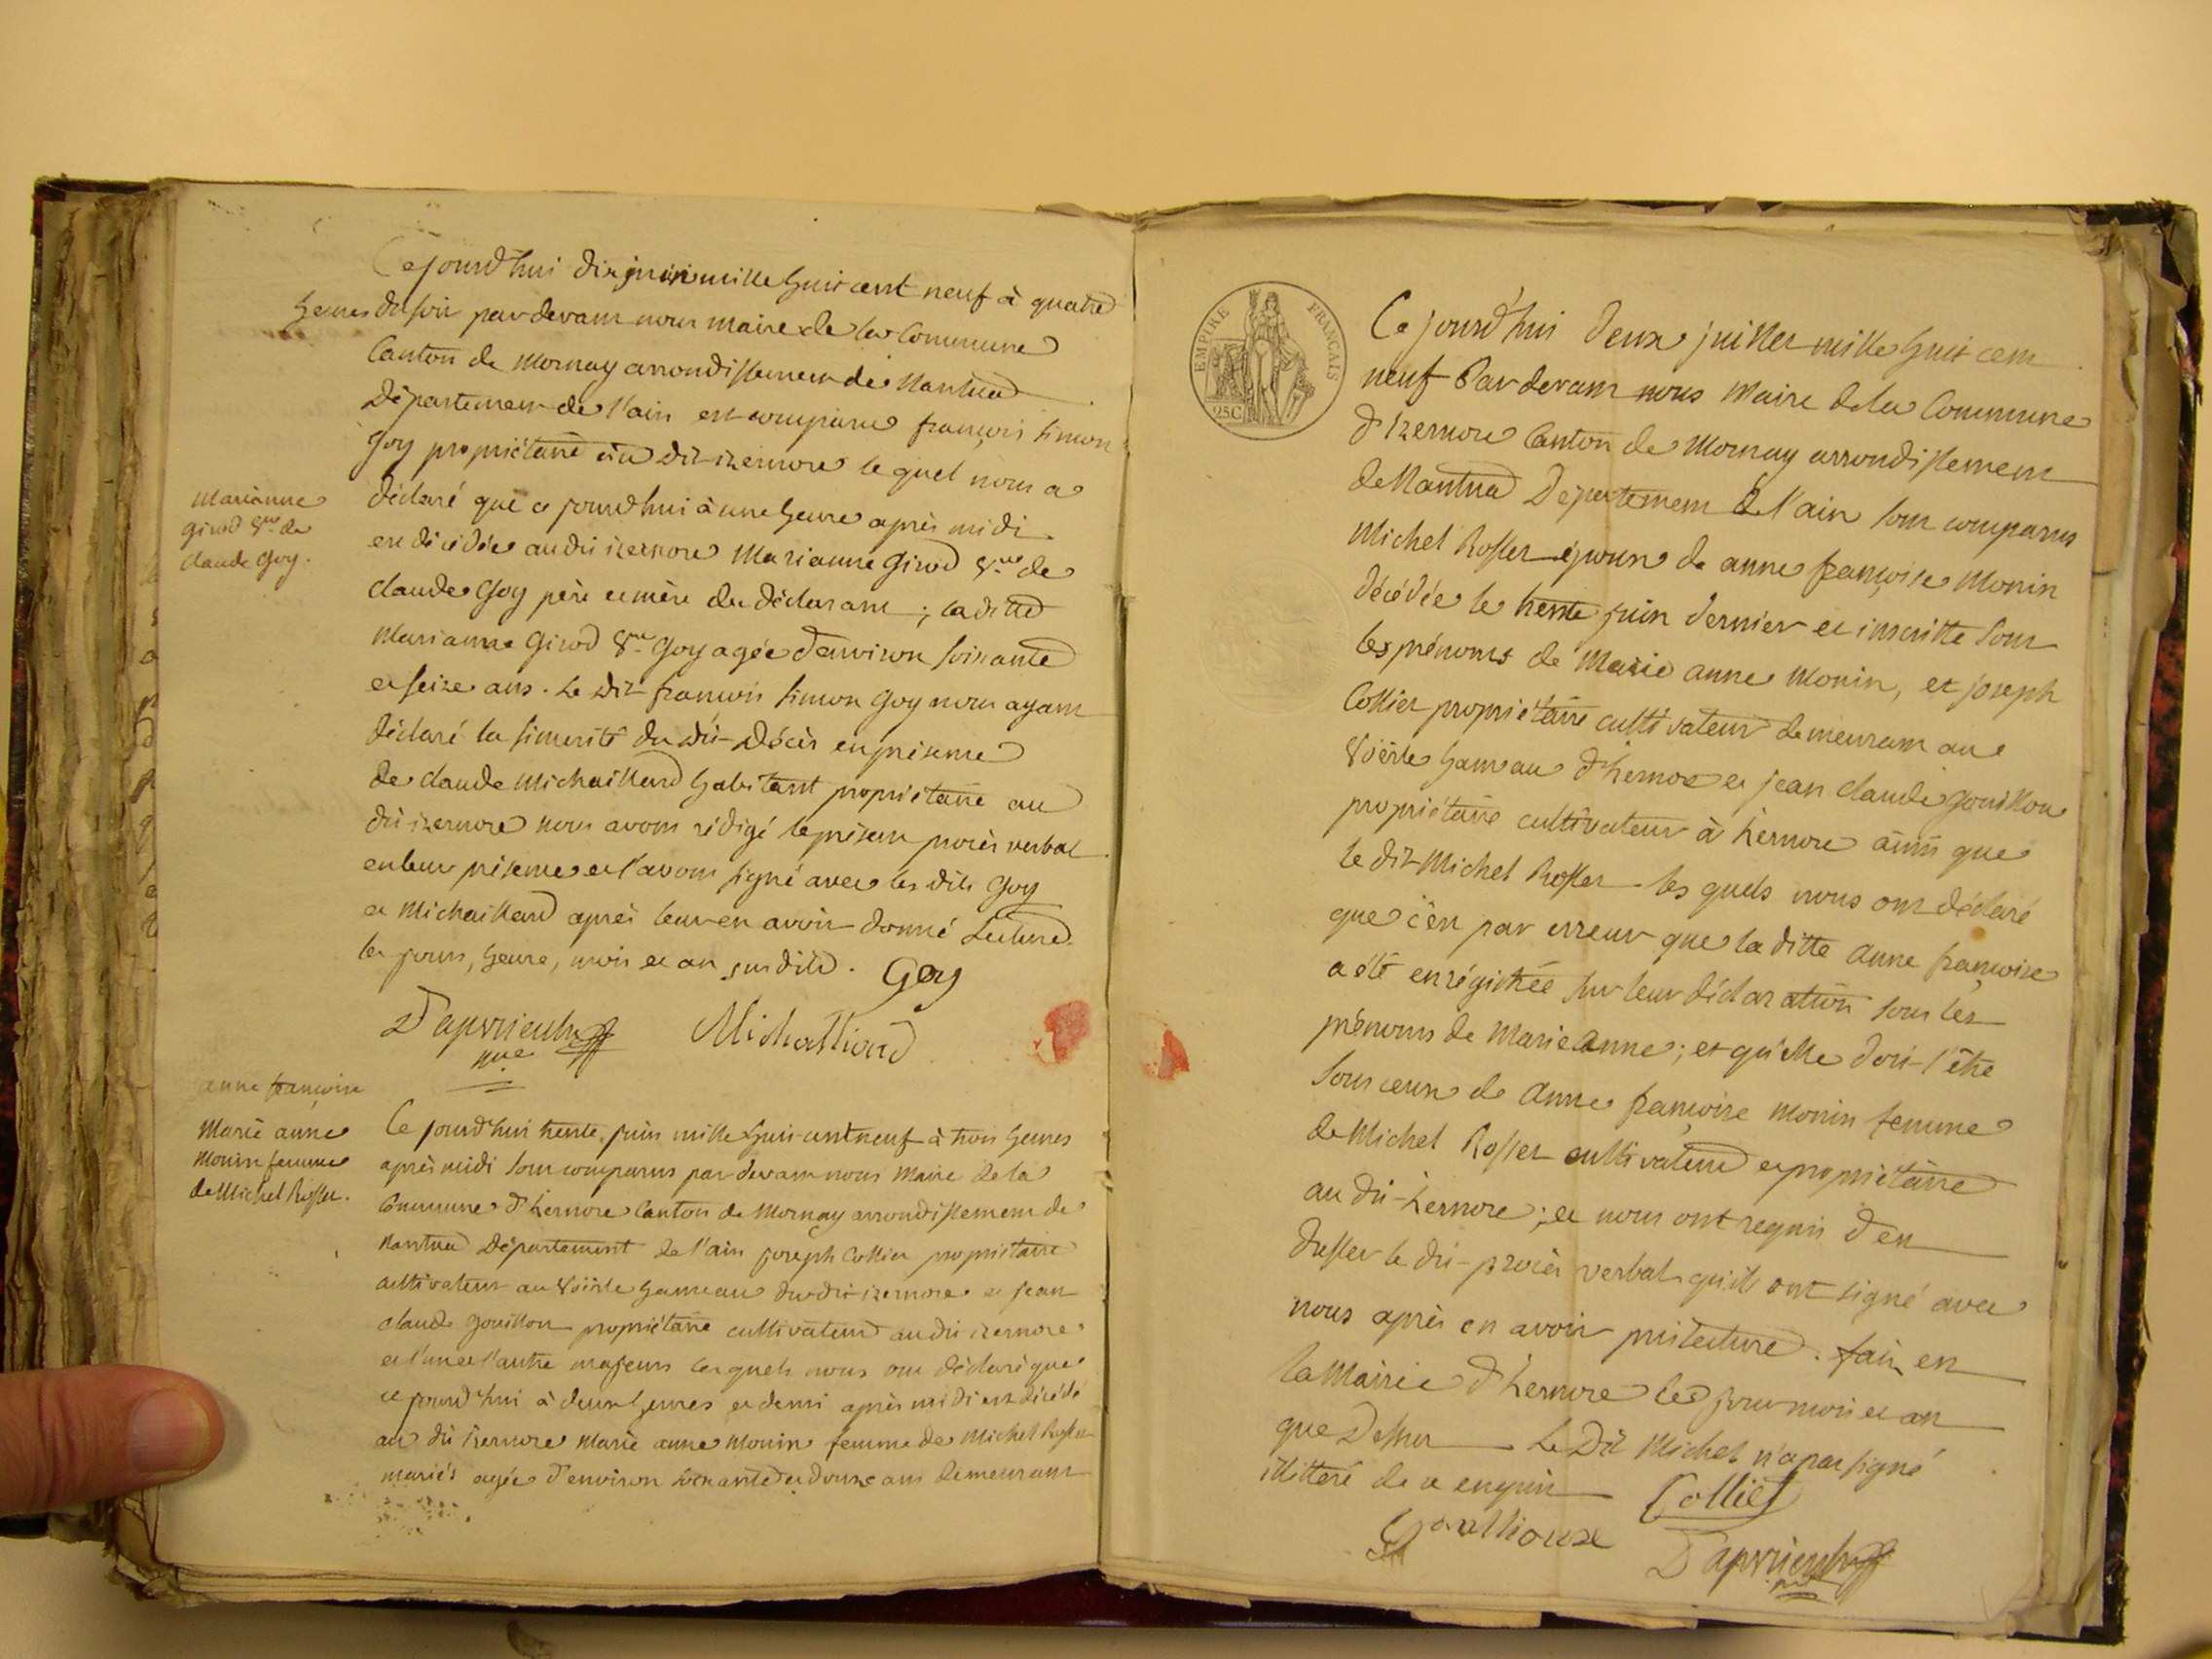 Cejourdhui dix juin mille huit cent neuf à quatre
heures du soir pardevant nous maire de la Commune
Canton de Mornay arrondissement de Nantua
Département de l'ain est comparu françois simon
Goy propriétaire au dit izernore lequel nous a
déclaré que ce jourdhui à une heure après midi
est décédée audit izernore Marianne Girod Vve de
claude Goy père et mère du déclarant ; la ditte
Marianne Girod Vve Goy agée d'environ soixante
et seize ans. Le dit françois simon Goy nous ayant
déclaré la sincerité du dit décès en présence
de claude Michaillard habitant propriétaire au
dit izernore nous avons rédigé le présent procès verbal
en leur présence et l'avons signé avec les dits Goy
et Michaillard après leur en avoir donné Lecture
les jours, heure, mois et an susdits. Goy
Michalliard
Marianne
Girod Vve de
claude Goy.
anne françoise
Marie anne
Monin femme
de Michel Rosset.
Ce jourdhui trente juin mille huit cent neuf à trois heures
après midi sont comparus par devant nous Maire de la
Commune d'Izernore Canton de Mornay arrondissement de
Nantua Département de l'ain joseph Collier propriétaire
cultivateur au Voërle hameau du dit izernore et jean
claude Gouillon propriétaire cultivateur au dit izernore
et l'un et l'autre majeurs lesquels nous ont déclaré que
ce jourd'hui à deux heures et demi après midi est décédé
au dit izernore Marie anne Monin femme de Michel Rosset
mariés agée d'environ soixante et douze ans demeurant
EMPIRE FRANÇAIS
25C
Ce jourd'hui deux juillet mille huit cent
neuf Par devant nous Maire de la Commune
d'Izernore Canton de Mornay arrondissement
de Nantua Département de l'ain sont comparus
Michel Rosset époux de anne françoise Monin
décédée le trente juin dernier et inscritte sous
les prénoms de Marie anne Monin, et joseph
Collier propriétaire cultivateur demeurant au
Voërle hameau d'Izernore et jean claude Gouillon
propriétaire cultivateur à Izernore ainsi que
le dit Michel Rosset les quels nous ont déclaré
que c'est par erreur que la ditte anne françoise
a été enrégistrée sur leur déclaration sous les
prénoms de Marie Anne ; et qu'elle doit l'être
sous ceux de Anne françoise Monin femme
de Michel Rosset cultivateur et propriétaire
au dit Izernore ; et nous ont requis d'en
dresser le dit procès verbal qu'ils ont signé avec
nous après en avoir pris lecture. fait en
la Mairie d'Izernore les jour mois et an
que dessus Le Dit Michel n'a pas signé
illitteré de ce enquis Colliet